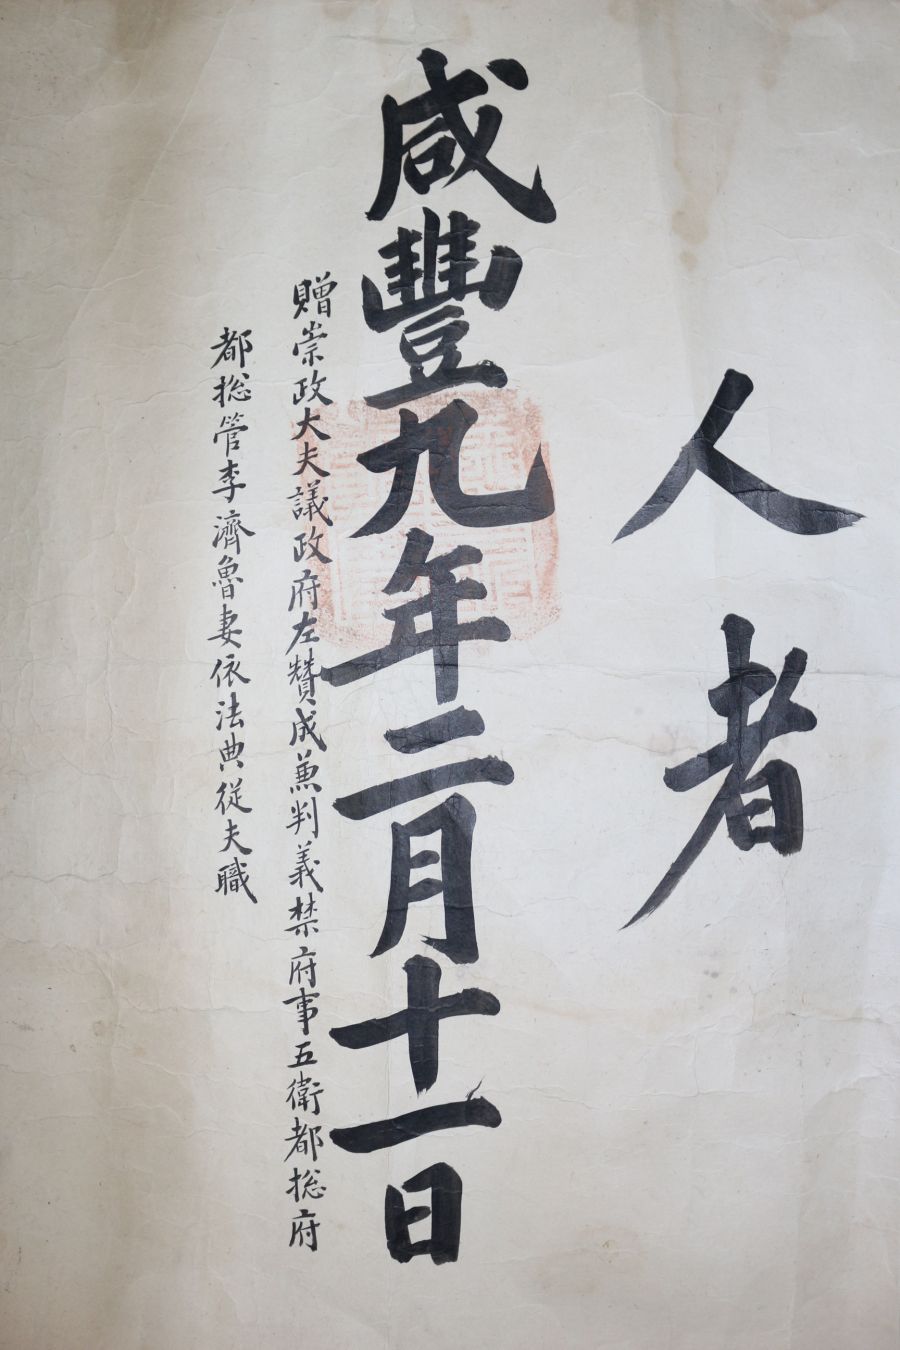 人者
咸豐九年二月十一日
贈崇政大夫議政府左贊成兼判義禁府事五衛都総府
都総管李濟魯妻依法典從夫職